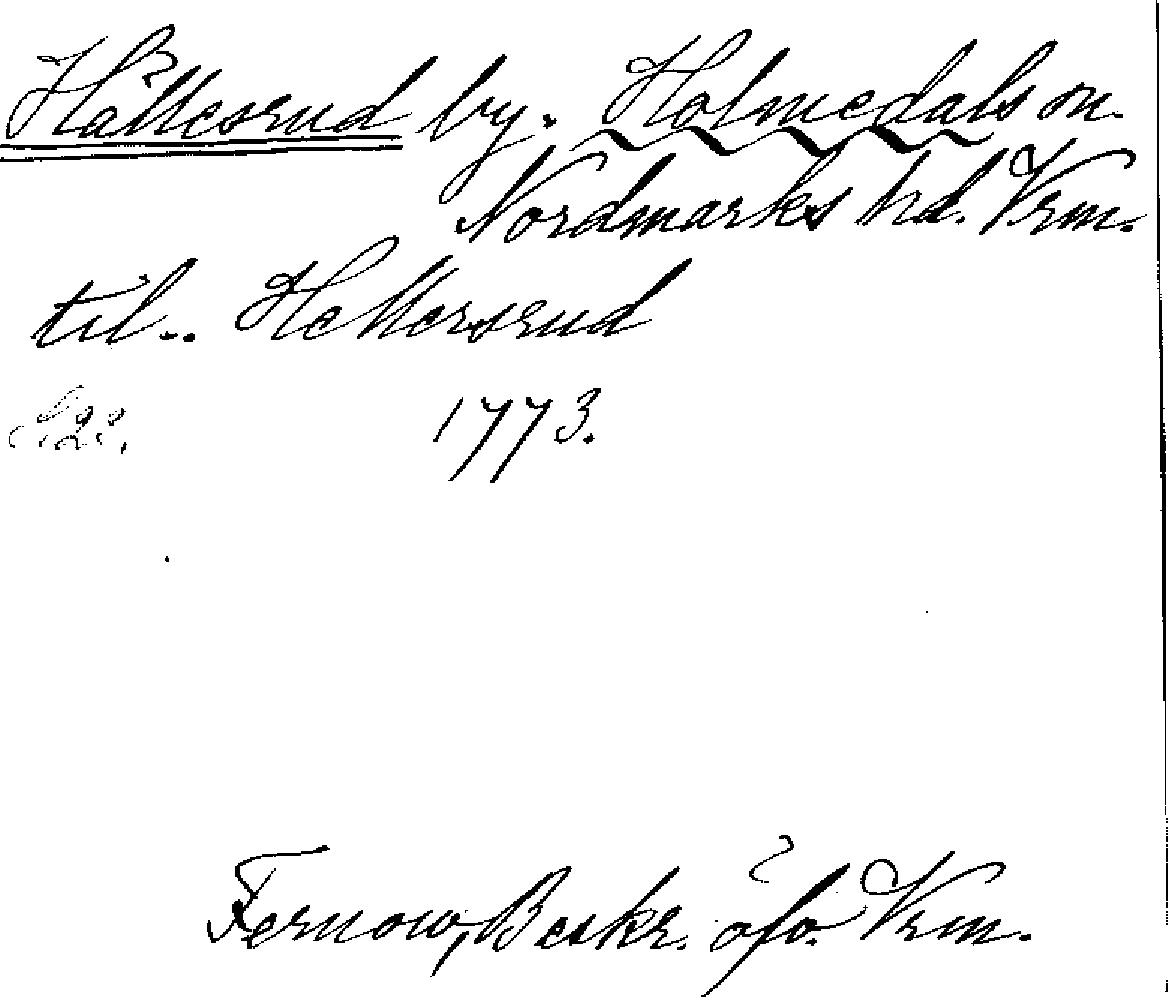 Hällesrud by. Holmedals sn.
Nordmarks hd. Vrm.
till.. Hellersrud
1773.
Fernow, Beskr. öfv. Vrm.